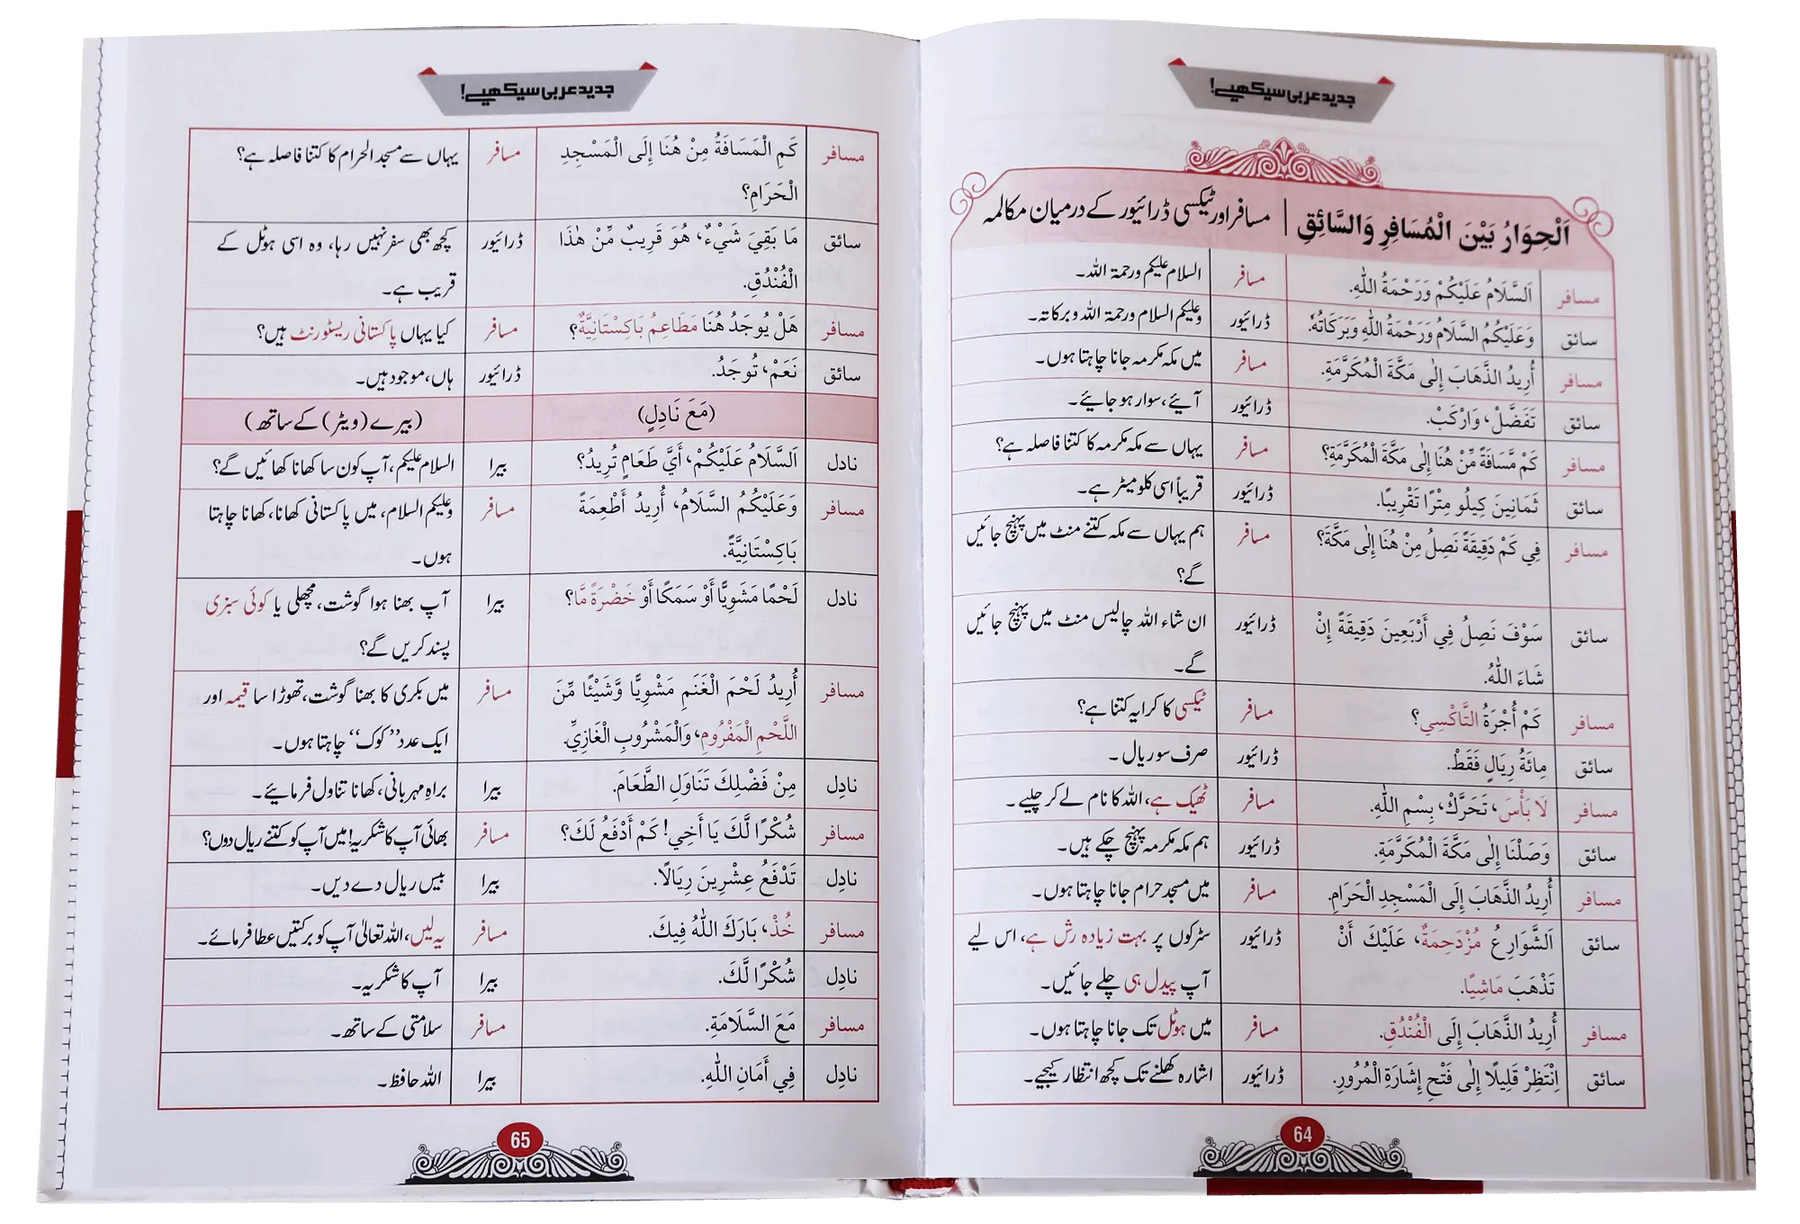 جدید عربی سیکھیے!
اَلْحِوَارُ بَيْنَ الْمُسَافِرِ وَالسَّائِقِ | مسافر اور ٹیکسی ڈرائیور کے درمیان مکالمہ
مسافر اَلسَّلَامُ عَلَيْكُمْ وَرَحْمَةُ اللّٰهِ. مسافر السلام علیکم ورحمۃ اللہ۔
سائق وَعَلَيْكُمُ السَّلَامُ وَرَحْمَةُ اللّٰهِ وَبَرَكَاتُهٗ. ڈرائیور وعلیکم السلام ورحمۃ اللہ وبرکاتہ۔
مسافر أُرِيدُ الذَّهَابَ إِلٰى مَكَّةَ الْمُكَرَّمَةِ. مسافر میں مکہ مکرمہ جانا چاہتا ہوں۔
سائق تَفَضَّلْ، وَارْكَبْ. ڈرائیور آیئے، سوار ہو جایئے۔
مسافر كَمْ مَّسَافَةً مِّنْ هُنَا إِلٰى مَكَّةَ الْمُكَرَّمَةِ؟ مسافر یہاں سے مکہ مکرمہ کا کتنا فاصلہ ہے؟
سائق ثَمَانِينَ كِيلُو مِتْرًا تَقْرِيبًا. ڈرائیور قریباً اسی کلومیٹر ہے۔
مسافر فِي كَمْ دَقِيقَةً نَصِلُ مِنْ هُنَا إِلٰى مَكَّةَ؟ مسافر ہم یہاں سے مکہ کتنے منٹ میں پہنچ جائیں
گے؟
سائق سَوْفَ نَصِلُ فِي أَرْبَعِينَ دَقِيقَةً إِنْ ڈرائیور ان شاء اللہ چالیس منٹ میں پہنچ جائیں
شَاءَ اللّٰهُ. گے۔
مسافر كَمْ أُجْرَةُ التَّاكْسِي؟ مسافر ٹیکسی کا کرایہ کتنا ہے؟
سائق مِائَةُ رِيَالٍ فَقَطْ. ڈرائیور صرف سو ریال۔
مسافر لَا بَأْسَ، تَحَرَّكْ، بِسْمِ اللّٰهِ. مسافر ٹھیک ہے، اللہ کا نام لے کر چلیے۔
سائق وَصَلْنَا إِلٰى مَكَّةَ الْمُكَرَّمَةِ. ڈرائیور ہم مکہ مکرمہ پہنچ چکے ہیں۔
مسافر أُرِيدُ الذَّهَابَ إِلَى الْمَسْجِدِ الْحَرَامِ. مسافر میں مسجد حرام جانا چاہتا ہوں۔
سائق اَلشَّوَارِعُ مُزْدَحِمَةٌ، عَلَيْكَ أَنْ ڈرائیور سڑکوں پر بہت زیادہ رش ہے، اس لیے
تَذْهَبَ مَاشِيًا. آپ پیدل ہی چلے جائیں۔
مسافر أُرِيدُ الذَّهَابَ إِلَى الْفُنْدُقِ. مسافر میں ہوٹل تک جانا چاہتا ہوں۔
سائق اِنْتَظِرْ قَلِيلًا إِلٰى فَتْحِ إِشَارَةِ الْمُرُورِ. ڈرائیور اشارہ کھلنے تک کچھ انتظار کیجیے۔
64
جدید عربی سیکھیے!
مسافر كَمِ الْمَسَافَةُ مِنْ هُنَا إِلَى الْمَسْجِدِ مسافر یہاں سے مسجد الحرام کا کتنا فاصلہ ہے؟
الْحَرَامِ؟
سائق مَا بَقِيَ شَيْءٌ، هُوَ قَرِيبٌ مِّنْ هٰذَا ڈرائیور کچھ بھی سفر نہیں رہا، وہ اسی ہوٹل کے
الْفُنْدُقِ. قریب ہے۔
مسافر هَلْ يُوجَدُ هُنَا مَطَاعِمُ بَاكِسْتَانِيَّةٌ؟ مسافر کیا یہاں پاکستانی ریسٹورنٹ ہیں؟
سائق نَعَمْ، تُوجَدُ. ڈرائیور ہاں، موجود ہیں۔
(مَعَ نَادِلٍ) (بیرے (ویٹر) کے ساتھ)
نادل اَلسَّلَامُ عَلَيْكُمْ، أَيَّ طَعَامٍ تُرِيدُ؟ بیرا السلام علیکم، آپ کون سا کھانا کھائیں گے؟
مسافر وَعَلَيْكُمُ السَّلَامُ، أُرِيدُ أَطْعِمَةً مسافر وعلیکم السلام، میں پاکستانی کھانا، کھانا چاہتا
بَاكِسْتَانِيَّةً. ہوں۔
نادل لَحْمًا مَشْوِيًّا أَوْ سَمَكًا أَوْ خَضْرَةً مَّا؟ بیرا آپ بھنا ہوا گوشت، مچھلی یا کوئی سبزی
پسند کریں گے؟
مسافر أُرِيدُ لَحْمَ الْغَنَمِ مَشْوِيًّا وَّشَيْئًا مِّنَ مسافر میں بکری کا بھنا گوشت، تھوڑا سا قیمہ اور
اللَّحْمِ الْمَفْرُومِ، وَالْمَشْرُوبِ الْغَازِيِّ. ایک عدد ’’کوک‘‘ چاہتا ہوں۔
نادِل مِنْ فَضْلِكَ تَنَاوَلِ الطَّعَامَ. بیرا براہِ مہربانی، کھانا تناول فرمایئے۔
مسافر شُكْرًا لَّكَ يَا أَخِي! كَمْ أَدْفَعُ لَكَ؟ مسافر بھائی آپ کا شکریہ! میں آپ کو کتنے ریال دوں؟
نادِل تَدْفَعُ عِشْرِينَ رِيَالًا. بیرا بیس ریال دے دیں۔
مسافر خُذْ، بَارَكَ اللّٰهُ فِيكَ. مسافر یہ لیں، اللہ تعالیٰ آپ کو برکتیں عطا فرمائے۔
نادِل شُكْرًا لَّكَ. بیرا آپ کا شکریہ۔
مسافر مَعَ السَّلَامَةِ. مسافر سلامتی کے ساتھ۔
نادِل فِي أَمَانِ اللّٰهِ. بیرا اللہ حافظ۔
65